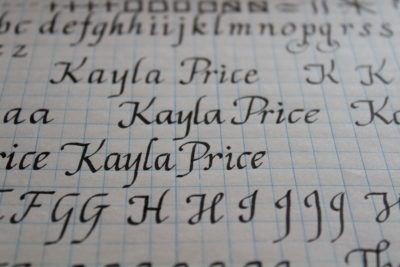 bc defghhiijklmnopqrss
z z
Kayla Price K K
aa Kayla Price Ka
rice Kayla Price
FGG H H I J J J H
Th